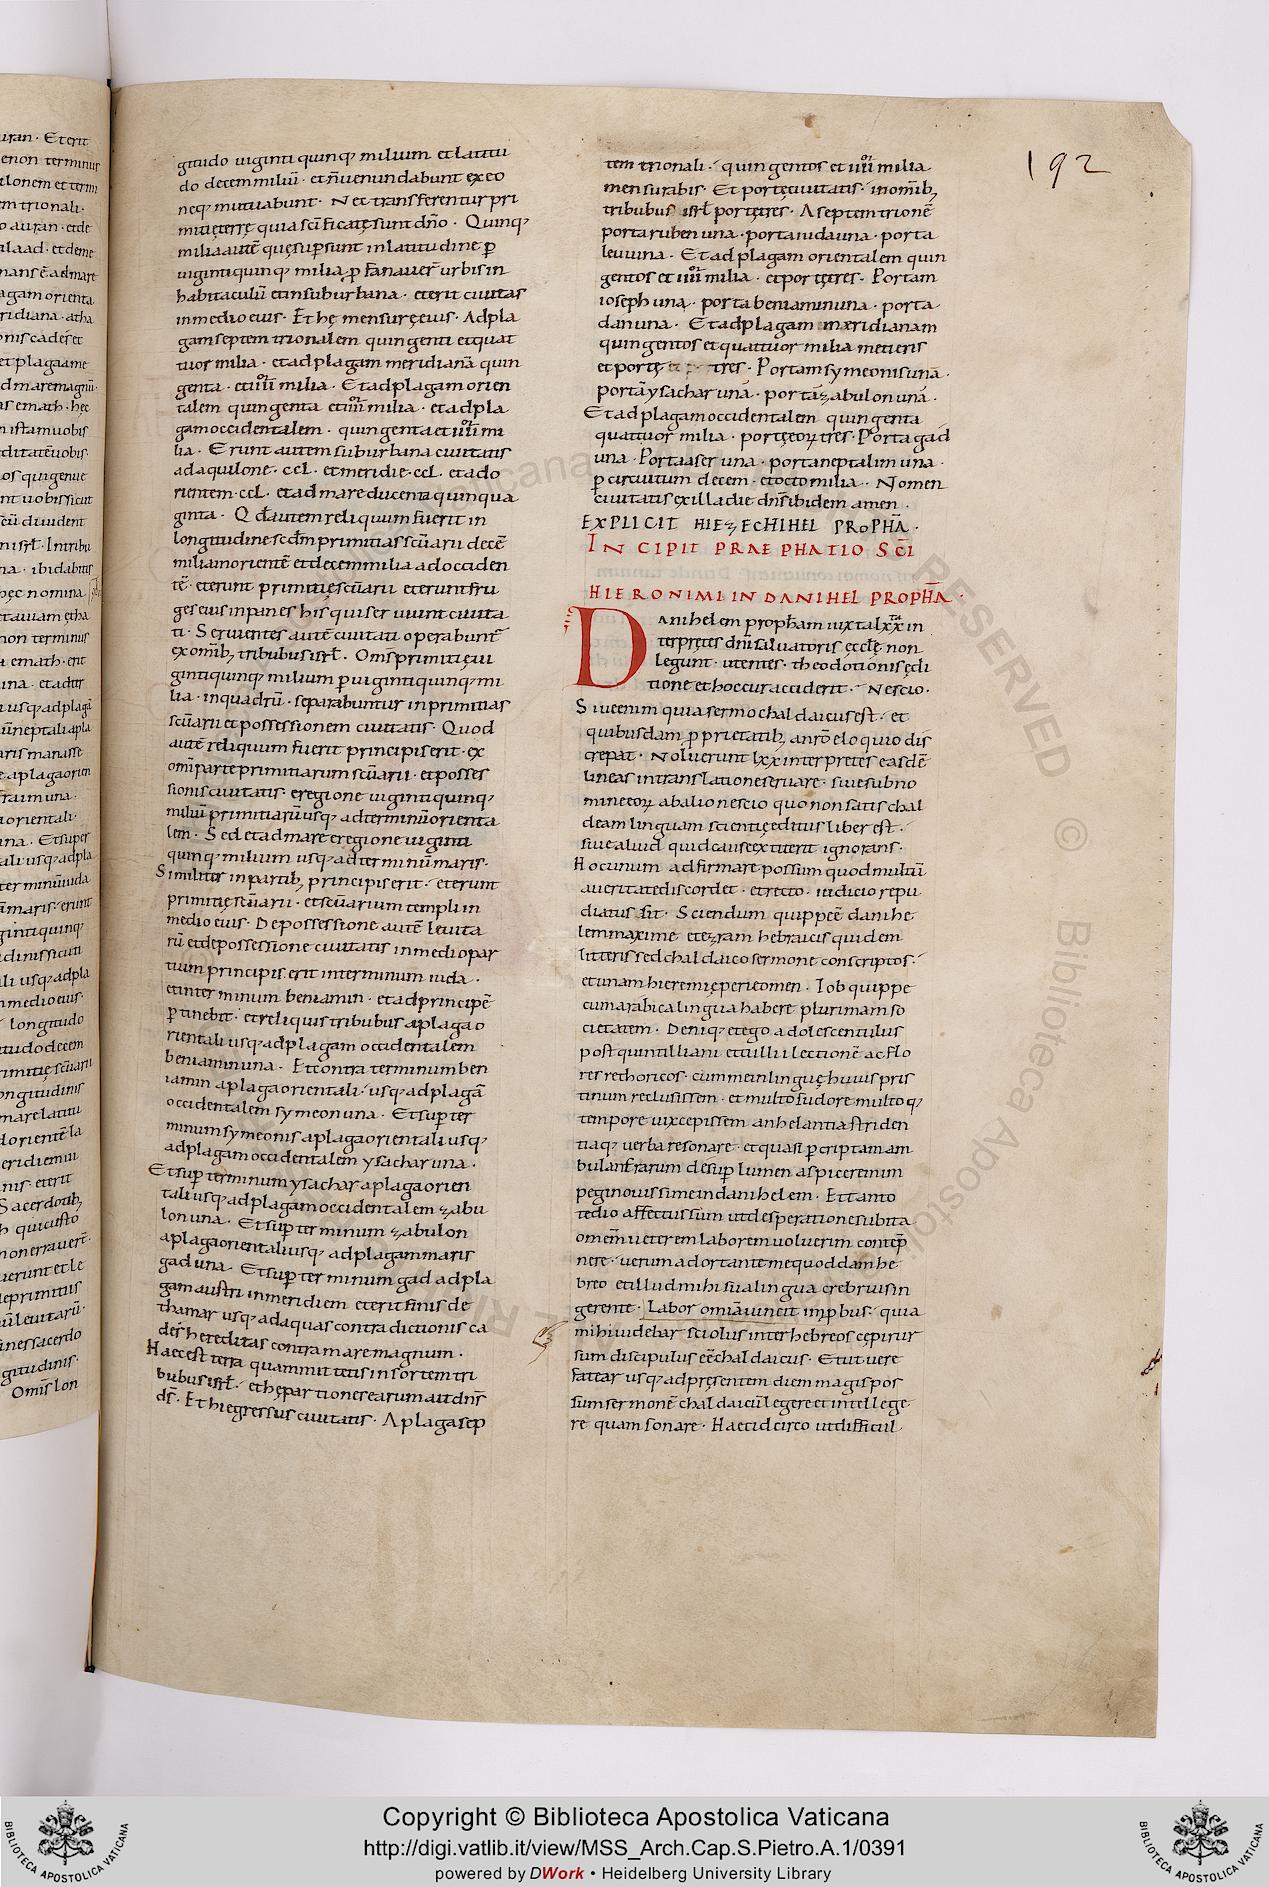 gitudo uiginti quinq; milium et latitu
do decem miliū · et n̄ uenundabunt ex eo
neq; mutuabunt · Nec transferentur pri
mitię terrę quia sc̄ificatę sunt dn̄o · Quinq;
milia autē quę sup̄sunt in latitudine p̄
uiginti quinq; milia p̄fana uer̄ urbis in
habitaculū et in suburbana · et erit ciuitas
in medio eius · Et hę mensurę eius · Ad pla
gam septemtrionalem quingenti et quat
tuor milia · et ad plagam meridianā quin
genta · et iiii milia · Et ad plagam orien
talem quingenta et iiii milia · et ad pla
gam occidentalem · quingenta et iiii mi
lia · Erunt autem suburbana ciuitatis
ad aquilone · ccl · et meridie · ccl · et ad o
rientem · ccl · et ad mare ducenta quinqua
ginta · Qd̄ autem reliquum fuerit in
longitudine scd̄m primitias scūarii decē
milia in orientē et decem milia ad occiden
tē · et erunt primitię scūarii et erunt fru
ges eius in panes his qui seruiunt ciuita
ti · Seruientes autē ciuitati operabunt̄
ex omīb; tribubus isrl̄ · Om̄s primitię ui
ginti quinq; milium p̄ uiginti quinq; mi
lia · in quadrū · separabuntur in primitias
scūarii et possessionem ciuitatis · Quod
autē reliquum fuerit principis erit · ex
om̄i parte primitiarum scūarii · et posses
sionis ciuitatis · e regione uiginti quinq;
miliū primitiarū usq; ad terminū orienta
lem · Sed et ad mare e regione uiginti
quinq; milium usq; ad terminū maris ·
Similiter in partib; principis erit · et erunt
primitię scūarii · et scūarium templi in
medio eius · De possessione autē leuita
rū et de possessione ciuitatis in medio par
tium principis · erit inter minum iuda ·
et inter minum beniamin · et ad principē
p̄tinebit · et reliquis tribubus a plaga o
rientali usq; ad plagam occidentalem
beniamin una · Et contra terminum ben
iamin a plaga orientali · usq; ad plagā
occidentalem symeon una · Et sup̄ ter
minum symeonis a plaga orientali usq;
ad plagam occidentalem ysachar una ·
Et sup̄ terminum ysachar a plaga orien
tali usq; ad plagam occidentalem zabu
lon una · Et sup̄ terminum zabulon
a plaga orientali usq; ad plagam maris
gad una · Et sup̄ terminum gad ad pla
gam austri in meridiem et erit finis de
thamar usq; ad aquas contradictionis ca
des̄ hereditas contra mare magnum ·
Haec est terra quam mittetis in sortem tri
bubus isrl̄ · et hę partiones earum ait dn̄s
ds̄ · Et hi egressus ciuitatis · A plaga sep
temtrionali · quingentos et iiii milia
mensurabis · Et portę ciuitatis · in omīb;
tribubus isrl̄ portę tres · A septemtrionē
porta ruben una · porta iuda una · porta
leui una · Et ad plagam orientalem quin
gentos et iiii milia · et portę tres · Portam
ioseph una · porta beniamin una · porta
dan una · Et ad plagam meridianam
quingentos et quattuor milia metieris
et portę tres · Portam symeonis unā ·
portā ysachar unā · portā zabulon unā ·
Et ad plagam occidentalem quingenta
quattuor milia · portę eoꝝ tres · Porta gad
una · Porta aser una · porta neptalim una ·
p̄ circuitum decem · et octo milia · Nomen
ciuitatis ex illa die dn̄s ibidem amen ·
EXPLICIT HIEZECHIHEL PROPHĀ ·
INCIPIT PRAEPHATIO SC̄I
HIERONIMI IN DANIHEL PROPHĀ ·
Danihelem proph̄am iuxta lxx in
terpretes dn̄i saluatoris ęccl̄ę non
legunt · utentes · theodotionis ędi
tione et hoc cur acciderit · Nescio ·
Siue enim quia sermo chaldaicus est · et
quibusdam p̄prietatib; a nrō eloquio dis
crepat · Noluerunt lxx interpretes easdē
lineas in translatione seruare · siue sub no
mine eoꝝ ab alio nescio quo non satis chal
deam linguam sciente editus liber est ·
siue aliud quid causę extiterit ignorans ·
Hoc unum adfirmare possum quod multū
a ueritate discordet · et recto · iudicio repu
diatus sit · Sciendum quippe ē danihe
lem maxime et ezram hebraicis quidem
litteris sed chaldaico sermone conscriptos ·
et unam hieremię pericomen · Iob quippe
cum arabica lingua habere plurimam so
cietatem · Deniq; et ego adolescentulus
post quintilliani et tullii lectionē ac flo
res rethoricos · cum me in linguę huius pris
tinum reclusissem · et multo sudore multoq;
tempore uix cepissem anhelantia striden
tiaq; uerba resonare · et quasi p̄ criptam am
bulans rarum desup̄ lumen aspicerem im
pegi nouissime in danihelem · Et tanto
tedio affectus sum ut desperatione subita
omēm ueterem laborem uoluerim contēp
nere · uerum adortante me quoddam he
breo et illud mihi sua lingua crebrius in
gerente · Labor omīa uincit inp̄bus · quia
mihi uidebar sciolus inter hebreos cępi rur
sum discipulus eē chaldaicus · Et ut uere
fatear usq; ad pręsentem diem magis pos
sum sermonē chaldaicū legere et intellege
re quam sonare · Haec idcirco ut difficul
192
Copyright © Biblioteca Apostolica Vaticana
http://digi.vatlib.it/view/MSS_Arch.Cap.S.Pietro.A.1/0391
powered by DWork • Heidelberg University Library